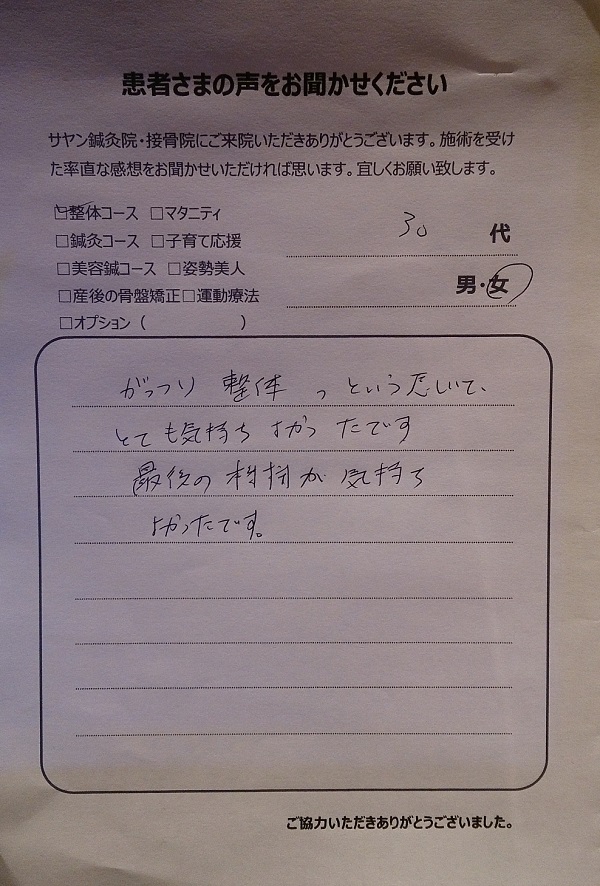 患者さまの声をお聞かせください
サヤン鍼灸院・接骨院にご来院いただきありがとうございます。施術を受け
た率直な感想をお聞かせいただければ思います。宜しくお願い致します。
☑整体コース □マタニティ
□鍼灸コース □子育て応援
□美容鍼コース □姿勢美人
□産後の骨盤矯正□運動療法
□オプション（　　　　　　）
30 代
男・女
がっつり 整体 っという感じで、
とても気持ち よかったです
最後の が 気持ち
よかったです。
ご協力いただきありがとうございました。